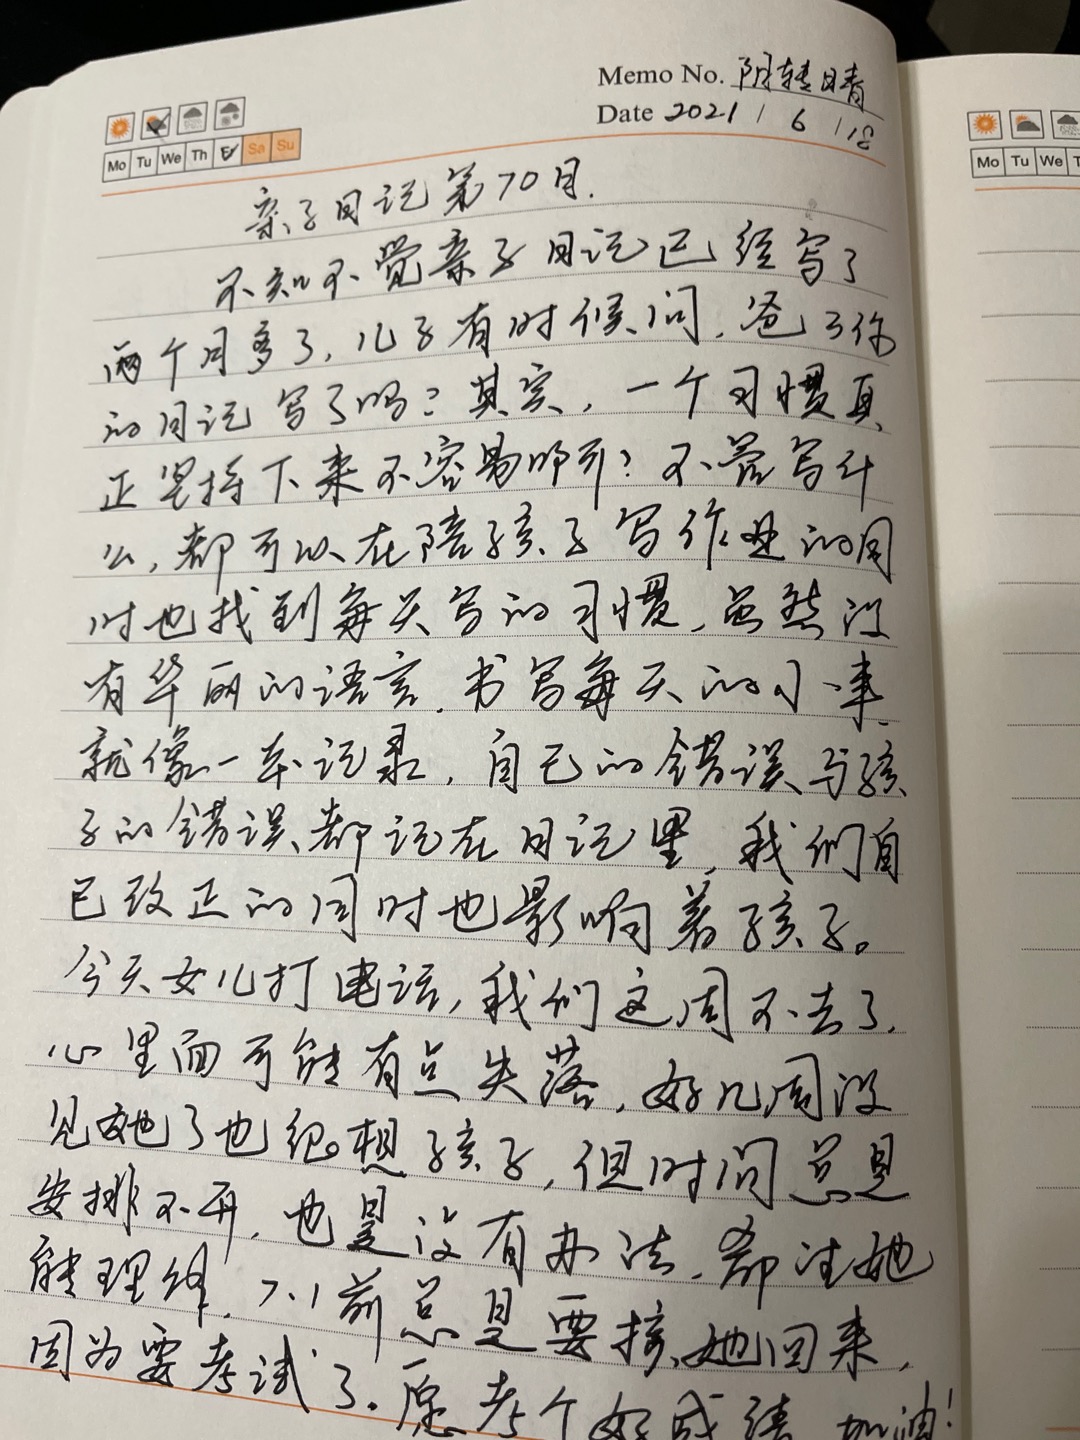 Memo No. 阴转晴
Date 2021 / 6 / 18
Mo Tu We Th Fr Sa Su
Mo Tu We T
亲子日记第70月.
不知不觉亲子日记已经写了
两个月多了,儿子有时候问,爸了你
的日记写了吗?其实,一个习惯真
正坚持下来不容易啊?不管写什
么,都可以在陪孩子写作业的同
时也找到每天写的习惯,虽然没
有华丽的语言,书写每天的小事
就像一本记录,自己的错误与孩
子的错误都记在日记里,我们自
己改正的同时也影响着孩子。
今天女儿打电话,我们这周不去了,
心里面可能有点失落,好几周没
见她了也很想孩子,但时间总是
安排不开,也是没有办法,希望她
能理解,7.1前总是要接她回来,
因为要考试了.愿考个好成绩加油!